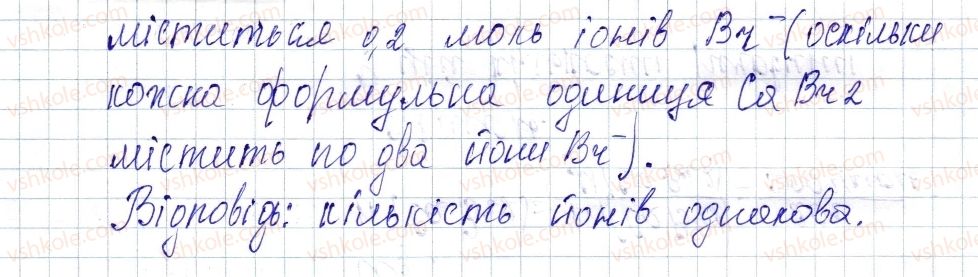 міститься 0,2 моль іонів Br⁻ (оскільки
кожна формульна одиниця CaBr2
містить по два йони Br⁻).
Відповідь: кількість йонів однакова.